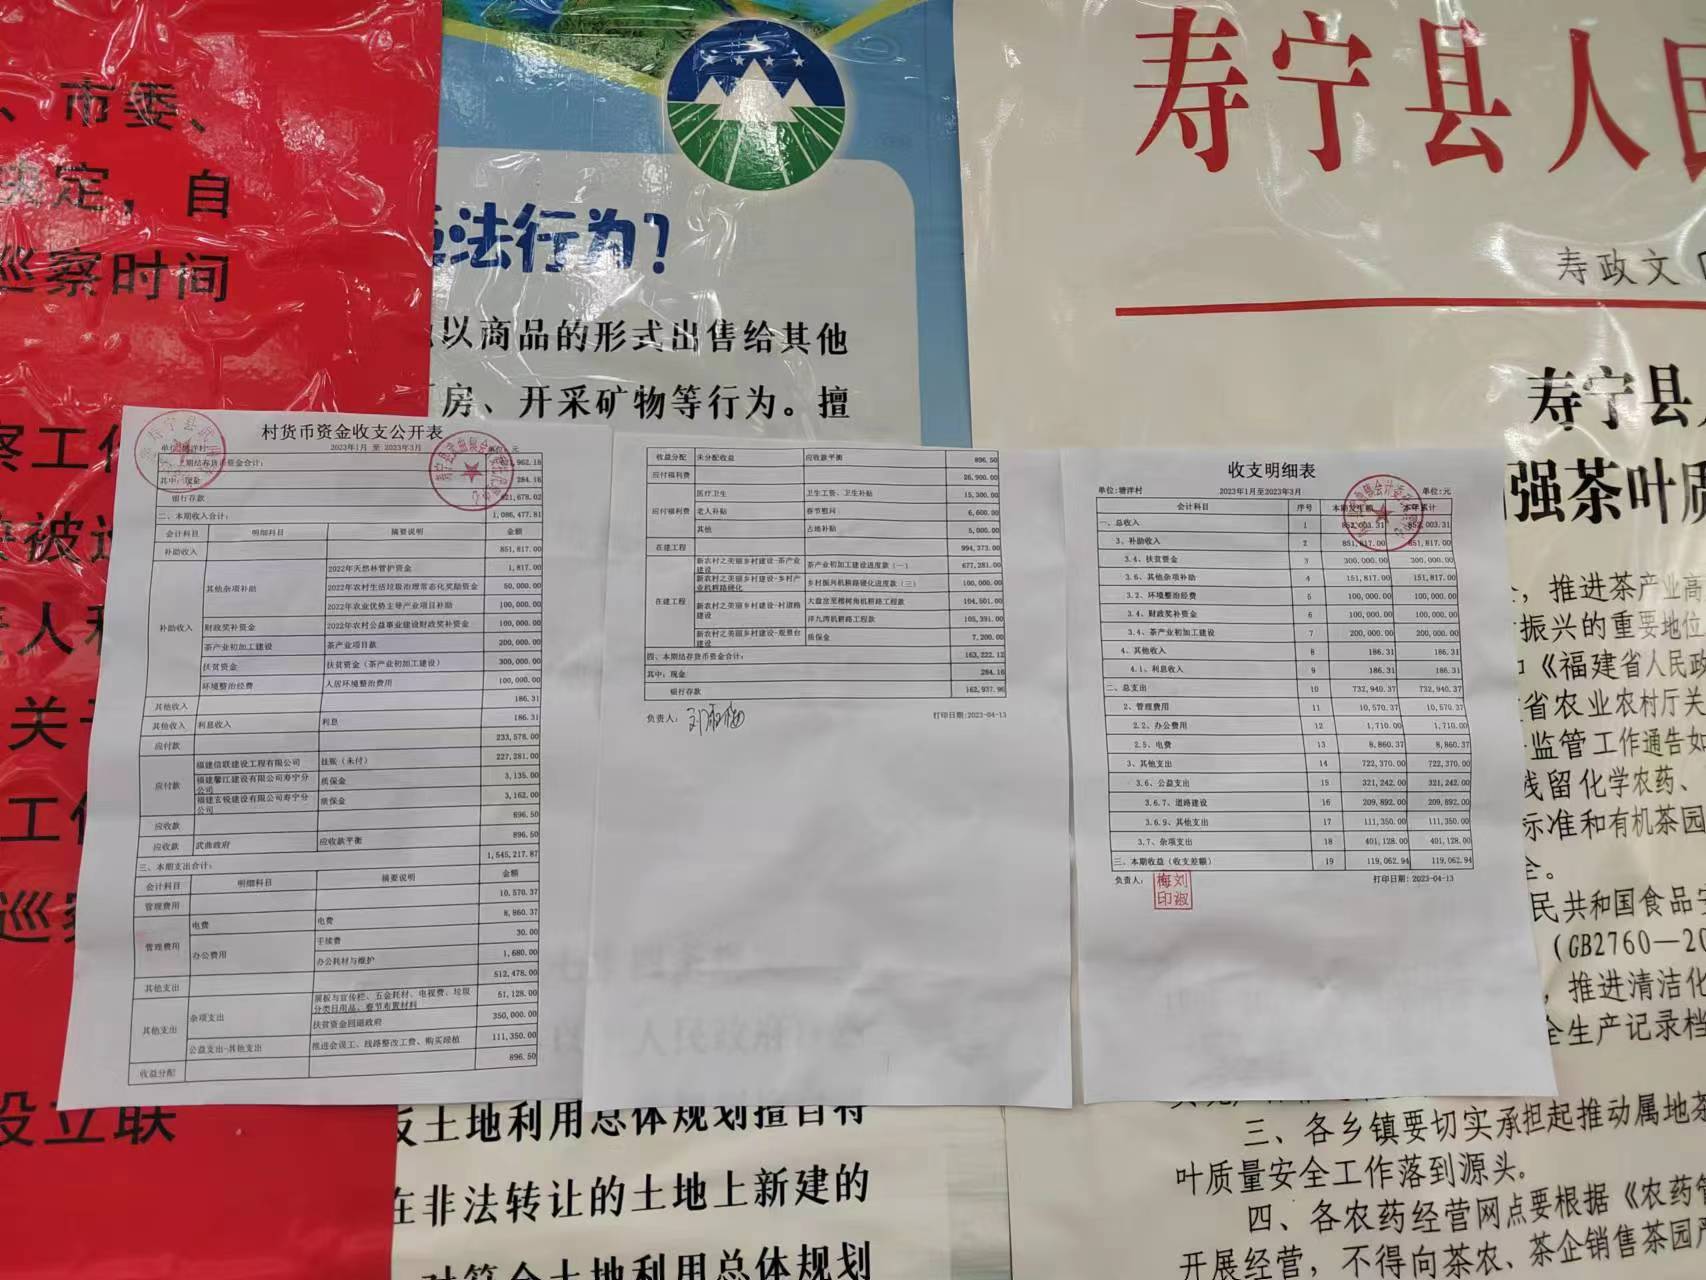 、市委、
决定，自
巡察时间
察工作
被巡
关于
工作
巡察
设立联
违法行为？
以商品的形式出售给其他
房、开采矿物等行为。擅
反土地利用总体规划擅自将
在非法转让的土地上新建的
对符合土地利用总体规划
寿宁县人民
寿政文
寿宁县人
强茶叶质
，推进茶产业高
振兴的重要地位
和《福建省人民政
省农业农村厅关
监管工作通告如
残留化学农药、
标准和有机茶园
全。
民共和国食品安
（GB2760—20
，推进清洁化
全生产记录档
三、各乡镇要切实承担起推动属地茶
叶质量安全工作落到源头。
四、各农药经营网点要根据《农药管
开展经营，不得向茶农、茶企销售茶园严
村货币资金收支公开表
2023年1月 至 2023年3月
一、上期结存货币资金合计：
其中：现金 284.16
银行存款 621,678.02
二、本期收入合计： 1,086,477.81
会计科目 明细科目 摘要说明 金额
补助收入 851,817.00
补助收入 其他杂项补助 2022年天然林管护资金 1,817.00
2022年农村生活垃圾治理常态化奖励资金 50,000.00
2022年农业优势主导产业项目补助 100,000.00
财政奖补资金 2022年农村公益事业建设财政奖补资金 100,000.00
茶产业初加工建设 茶产业项目款 200,000.00
扶贫资金 扶贫资金（茶产业初加工建设） 300,000.00
环境整治经费 人居环境整治费用 100,000.00
其他收入 186.31
其他收入 利息收入 利息 186.31
应付款 233,578.00
应付款 福建信联建设工程有限公司 挂账（未付） 227,281.00
福建馨江建设有限公司寿宁分公司 质保金 3,135.00
福建玄锐建设有限公司寿宁分公司 质保金 3,162.00
应收款 896.50
应收款 武曲政府 应收款平衡 896.50
三、本期支出合计： 1,545,217.87
会计科目 明细科目 摘要说明 金额
管理费用 10,570.37
管理费用 电费 电费 8,860.37
办公费用 手续费 30.00
办公耗材与维护 1,680.00
其他支出 512,478.00
其他支出 杂项支出 展板与宣传栏、五金耗材、电视费、垃圾分类日用品、春节布置材料 51,128.00
扶贫资金回退政府 350,000.00
公益支出-其他支出 推进会误工、线路整改工费、购买绿植 111,350.00
收益分配 896.50
收益分配 未分配收益 应收款平衡 896.50
应付福利费 26,900.00
应付福利费 医疗卫生 卫生工资、卫生补贴 15,300.00
老人补贴 春节慰问 6,600.00
其他 占地补贴 5,000.00
在建工程 994,373.00
在建工程 新农村之美丽乡村建设-茶产业建设 茶产业初加工建设进度款（一） 677,281.00
新农村之美丽乡村建设-乡村产业机耕路硬化 乡村振兴机耕路硬化进度款（三） 100,000.00
新农村之美丽乡村建设-村道路建设 大盘岔至榴树角机耕路工程款 104,501.00
洋九湾机耕路工程款 105,391.00
新农村之美丽乡村建设-观景台建设 质保金 7,200.00
四、本期结存货币资金合计： 163,222.12
其中：现金 284.16
银行存款 162,937.96
负责人： 打印日期：2023-04-13
收支明细表
单位：塘洋村 2023年1月至2023年3月 单位：元
会计科目 序号 本期发生额 本年累计
一、总收入 1 852,003.31 852,003.31
3、补助收入 2 851,817.00 851,817.00
3.4、扶贫资金 3 300,000.00 300,000.00
3.6、其他杂项补助 4 151,817.00 151,817.00
3.2、环境整治经费 5 100,000.00 100,000.00
3.4、财政奖补资金 6 100,000.00 100,000.00
3.4、茶产业初加工建设 7 200,000.00 200,000.00
4、其他收入 8 186.31 186.31
4.1、利息收入 9 186.31 186.31
二、总支出 10 732,940.37 732,940.37
2、管理费用 11 10,570.37 10,570.37
2.2、办公费用 12 1,710.00 1,710.00
2.5、电费 13 8,860.37 8,860.37
3、其他支出 14 722,370.00 722,370.00
3.6、公益支出 15 321,242.00 321,242.00
3.6.7、道路建设 16 209,892.00 209,892.00
3.6.9、其他支出 17 111,350.00 111,350.00
3.7、杂项支出 18 401,128.00 401,128.00
三、本期收益（收支差额） 19 119,062.94 119,062.94
负责人： 打印日期：2023-04-13
梅刘
印淑